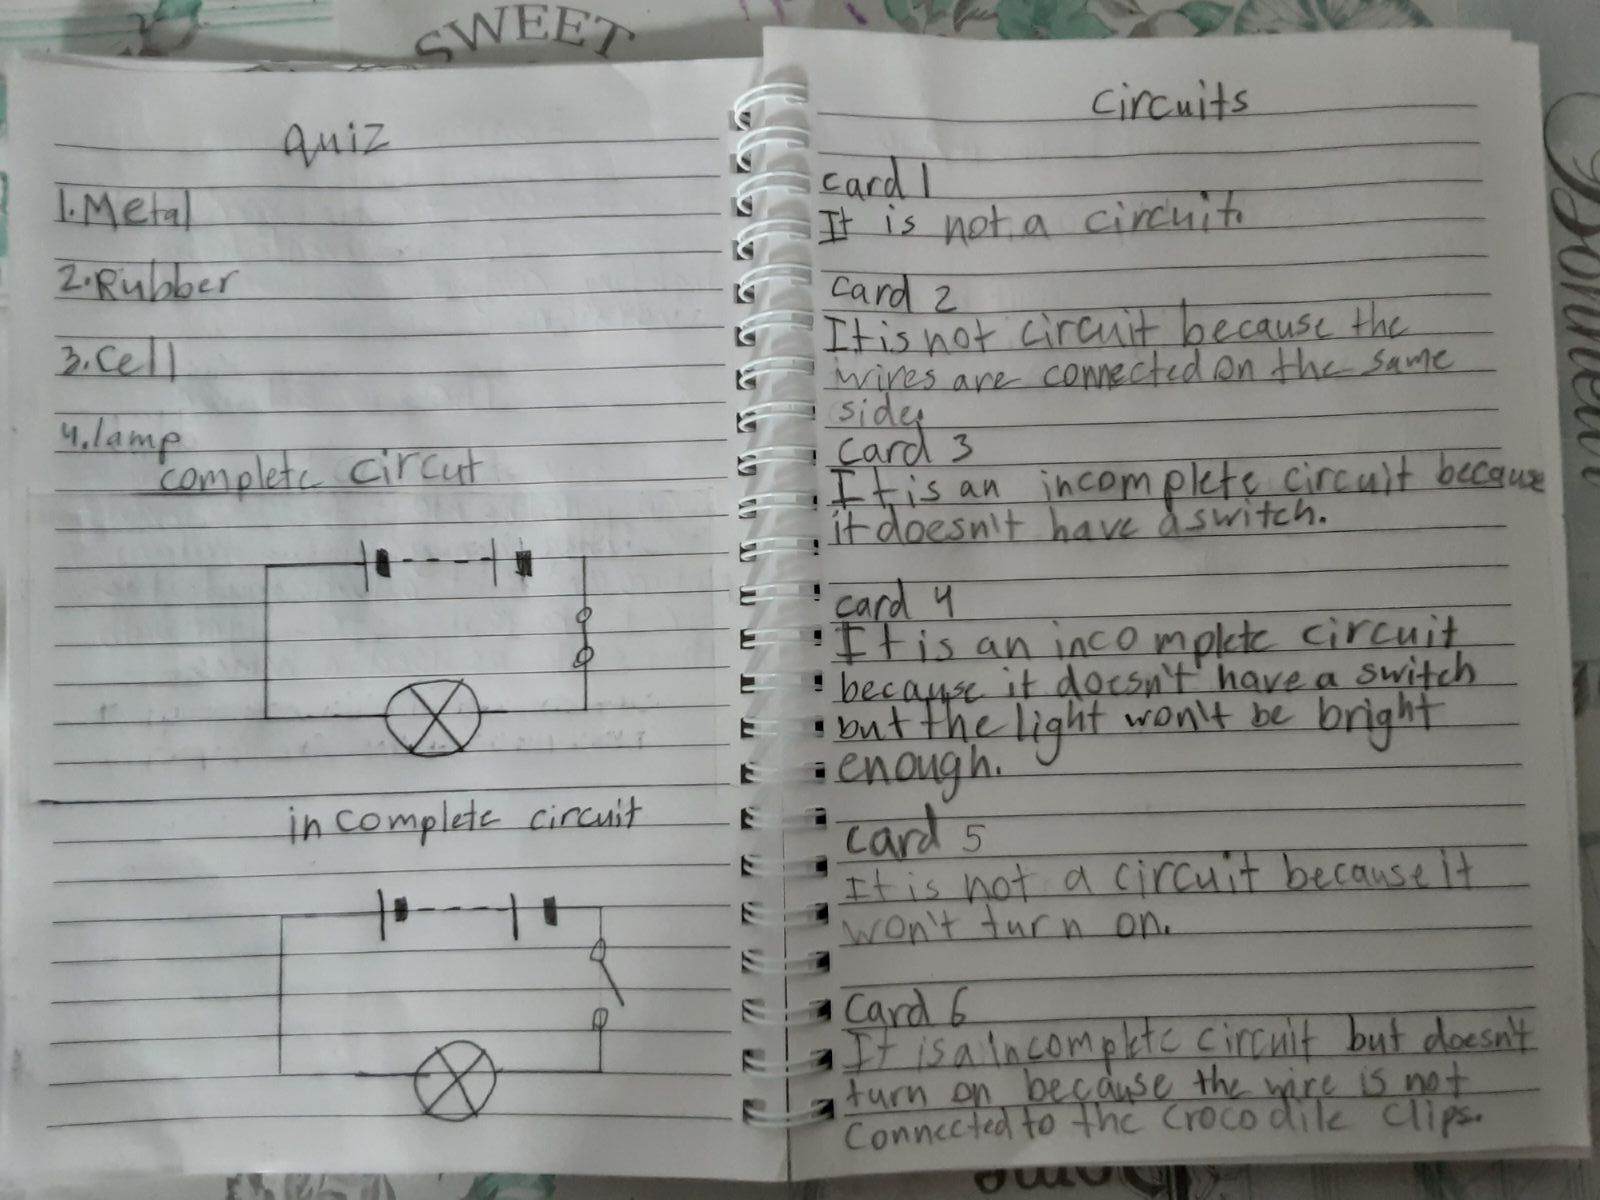 SWEET
quiz
1.Metal
2.Rubber
3.Cell
4.lamp
complete circut
incomplete circuit
circuits
card 1
It is not a circuit.
card 2
It is not circuit because the
wires are connected on the same
side.
card 3
It is an incomplete circuit because
it doesn't have a switch.
card 4
It is an incomplete circuit
because it doesn't have a switch
but the light won't be bright
enough.
card 5
It is not a circuit because it
won't turn on.
Card 6
It is a Incomplete circuit but doesn't
turn on because the wire is not
connected to the crocodile clips.
Bonheur